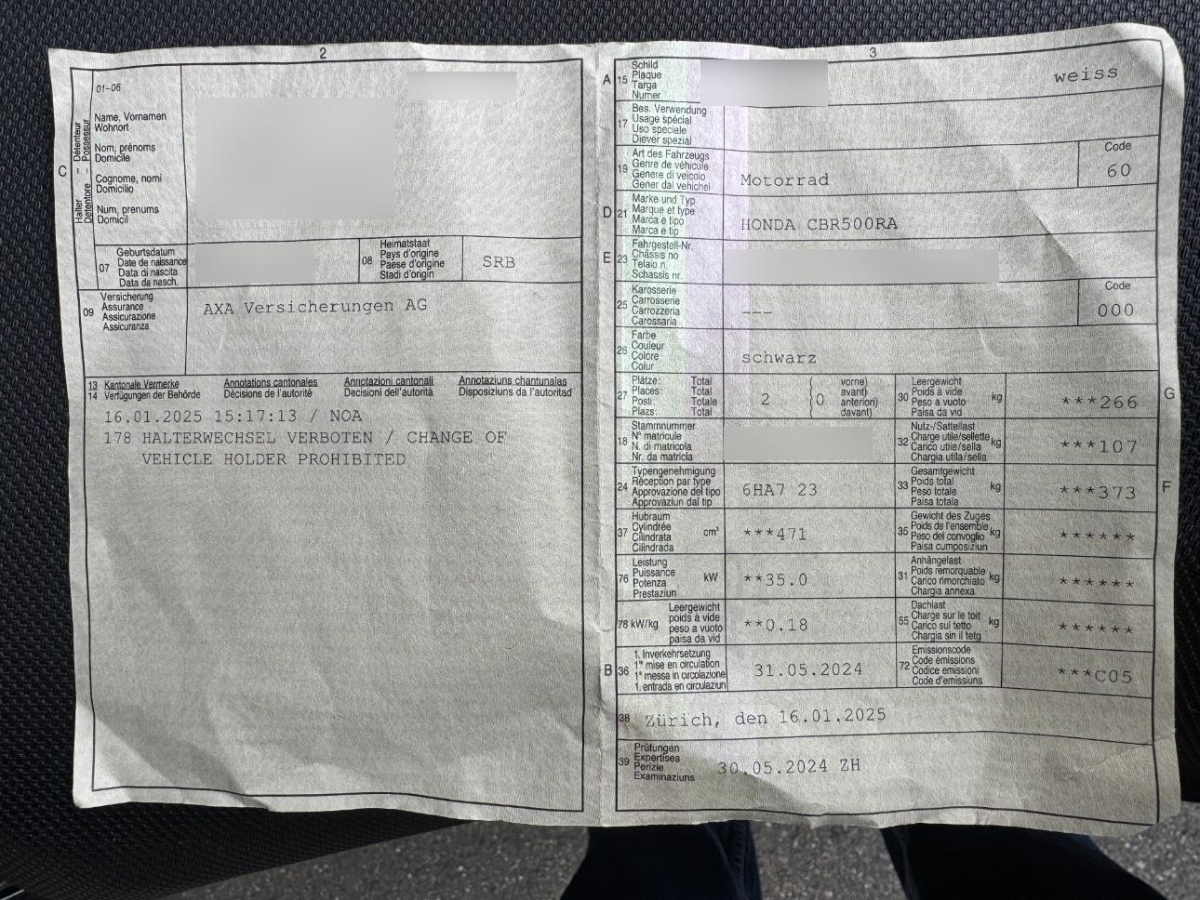 2
01-06
C
Halter - Détenteur
Detentore - Possessur
Name, Vornamen
Wohnort
Nom, prénoms
Domicile
Cognome, nomi
Domicilio
Num, prenums
Domicil
07
Geburtsdatum
Date de naissance
Data di nascita
Data da nasch.
08
Heimatstaat
Pays d'origine
Paese d'origine
Stadi d'origin
SRB
09
Versicherung
Assurance
Assicurazione
Assicuranza
AXA Versicherungen AG
13 Kantonale Vermerke Annotations cantonales Annotazioni cantonali Annotaziuns chantunalas
14 Verfügungen der Behörde Décisions de l'autorité Decisioni dell'autorità Disposiziuns da l'autoritad
16.01.2025 15:17:13 / NOA
178 HALTERWECHSEL VERBOTEN / CHANGE OF
VEHICLE HOLDER PROHIBITED
3
A 15
Schild
Plaque
Targa
Numer
weiss
17
Bes. Verwendung
Usage spécial
Uso speciale
Diever spezial
19
Art des Fahrzeugs
Genre de véhicule
Genere di veicolo
Gener dal vehichel
Motorrad
Code
60
D 21
Marke und Typ
Marque et type
Marca e tipo
Marca e tip
HONDA CBR500RA
E 23
Fahrgestell-Nr.
Châssis no
Telaio n.
Schassis nr.
25
Karosserie
Carrosserie
Carrozzeria
Carossaria
---
Code
000
26
Farbe
Couleur
Colore
Colur
schwarz
27
Plätze: Total
Places: Total
Posti: Totale
Plazs: Total
2
(0
vorne)
avant)
anteriori)
davant)
30
Leergewicht
Poids à vide
Peso a vuoto
Paisa da vid
kg
***266
G
18
Stammnummer
N° matricule
N. di matricola
Nr. da matricla
32
Nutz-/Sattellast
Charge utile/sellette
Carico utile/sella
Chargia utila/sella
kg
***107
24
Typengenehmigung
Réception par type
Approvazione del tipo
Approvaziun dal tip
6HA7 23
33
Gesamtgewicht
Poids total
Peso totale
Paisa totala
kg
***373
F
37
Hubraum
Cylindrée
Cilindrata
Cilindrada
cm³
***471
35
Gewicht des Zuges
Poids de l'ensemble
Peso del convoglio
Paisa cumposiziun
kg
******
76
Leistung
Puissance
Potenza
Prestaziun
kW
**35.0
31
Anhängelast
Poids remorquable
Carico rimorchiato
Chargia annexa
kg
******
78 kW/kg
Leergewicht
poids à vide
peso a vuoto
paisa da vid
**0.18
55
Dachlast
Charge sur le toit
Carico sul tetto
Chargia sin il tetg
kg
******
B 36
1. Inverkehrsetzung
1re mise en circulation
1a messa in circolazione
1. entrada en circulaziun
31.05.2024
72
Emissionscode
Code émissions
Codice emissioni
Code d'emissiuns
***C05
38
Zürich, den 16.01.2025
39
Prüfungen
Expertises
Perizie
Examinaziuns
30.05.2024 ZH